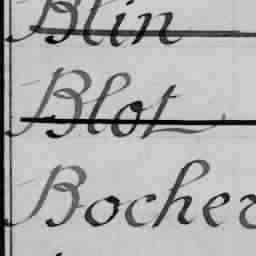 Blin
Blot
Bocher